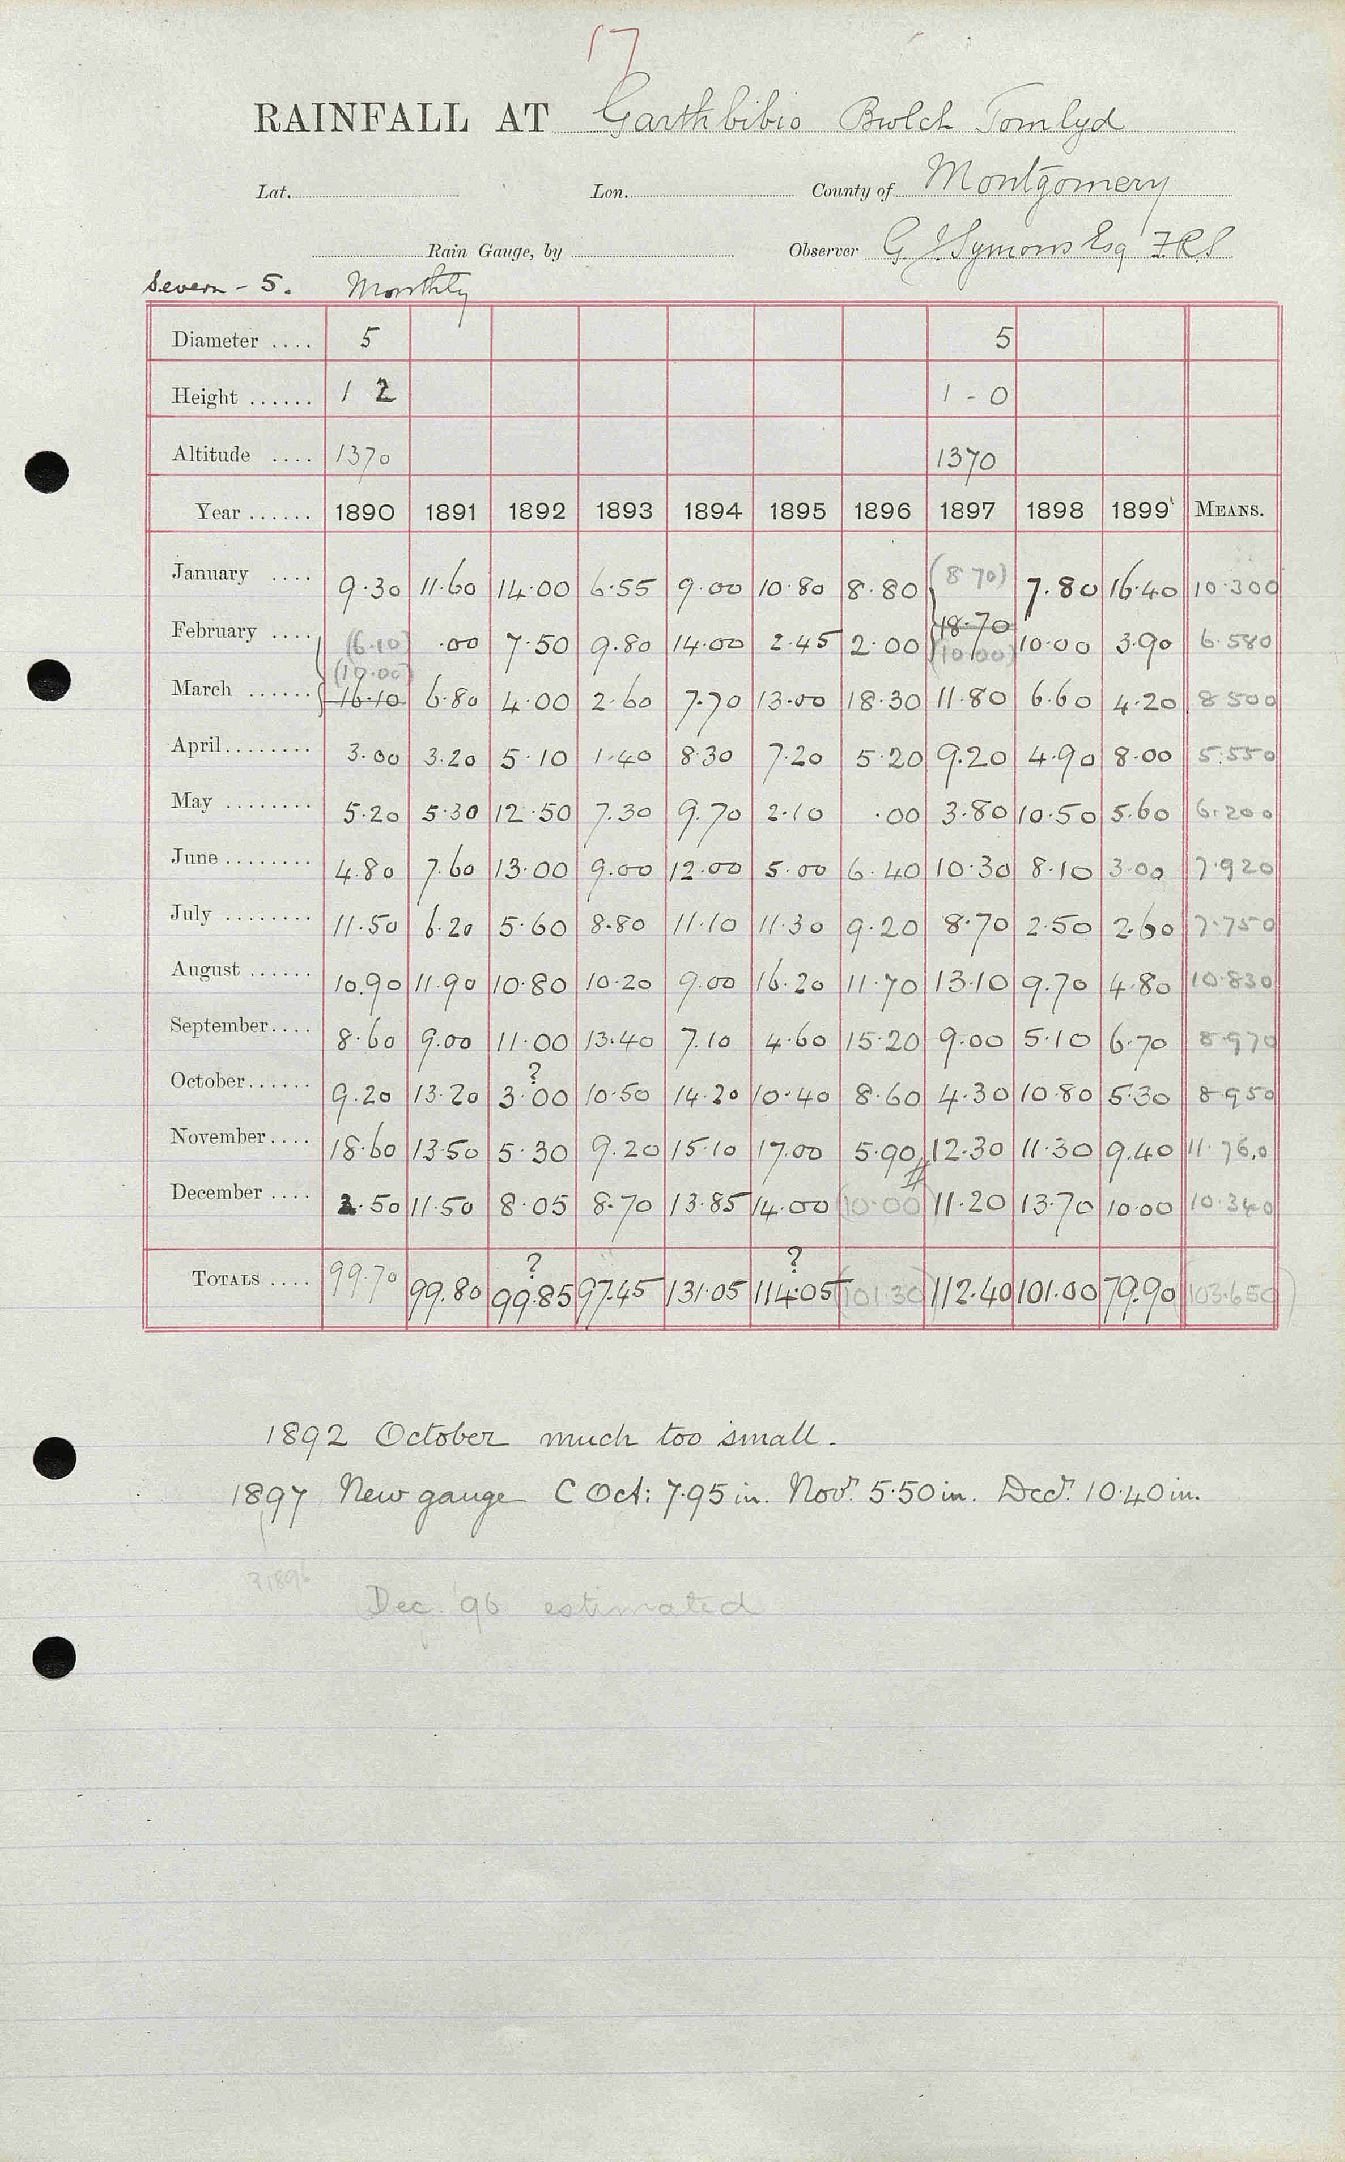 17
RAINFALL AT Garthbibio Bwlch Tomlyd
Lat. Lon. County of Montgomery
Rain Gauge, by Observer G. J. Symons Esq F.R.S
Severn - 5. Monthly
Diameter .... 5 5
Height ...... 1 2 1 - 0
Altitude .... 1370 1370
Year ...... 1890 1891 1892 1893 1894 1895 1896 1897 1898 1899 MEANS.
January .... 9.30 11.60 14.00 6.55 9.00 10.80 8.80 (8.70) 7.80 16.40 10.300
18.70
February .... (6.10) .00 7.50 9.80 14.00 2.45 2.00 (10.00) 10.00 3.90 6.580
(10.00)
March ...... 16.10 6.80 4.00 2.60 7.70 13.00 18.30 11.80 6.60 4.20 8.500
April........ 3.00 3.20 5.10 1.40 8.30 7.20 5.20 9.20 4.90 8.00 5.550
May ........ 5.20 5.30 12.50 7.30 9.70 2.10 .00 3.80 10.50 5.60 6.200
June ........ 4.80 7.60 13.00 9.00 12.00 5.00 6.40 10.30 8.10 3.00 7.920
July ........ 11.50 6.20 5.60 8.80 11.10 11.30 9.20 8.70 2.50 2.60 7.750
August ...... 10.90 11.90 10.80 10.20 9.00 16.20 11.70 13.10 9.70 4.80 10.830
September.... 8.60 9.00 11.00 13.40 7.10 4.60 15.20 9.00 5.10 6.70 8.970
?
October...... 9.20 13.20 3.00 10.50 14.20 10.40 8.60 4.30 10.80 5.30 8.950
November.... 18.60 13.50 5.30 9.20 15.10 17.00 5.90 12.30 11.30 9.40 11.760
December .... 2.50 11.50 8.05 8.70 13.85 14.00 (10.00) 11.20 13.70 10.00 10.340
? ?
TOTALS .... 99.70 99.80 99.85 97.45 131.05 114.05 (101.30) 112.40 101.00 79.90 (103.650)
1892 October much too small.
1897 New gauge C Oct: 7.95 in. Novr. 5.50 in. Decr. 10.40 in.
? 1896
Dec. '96 estimated